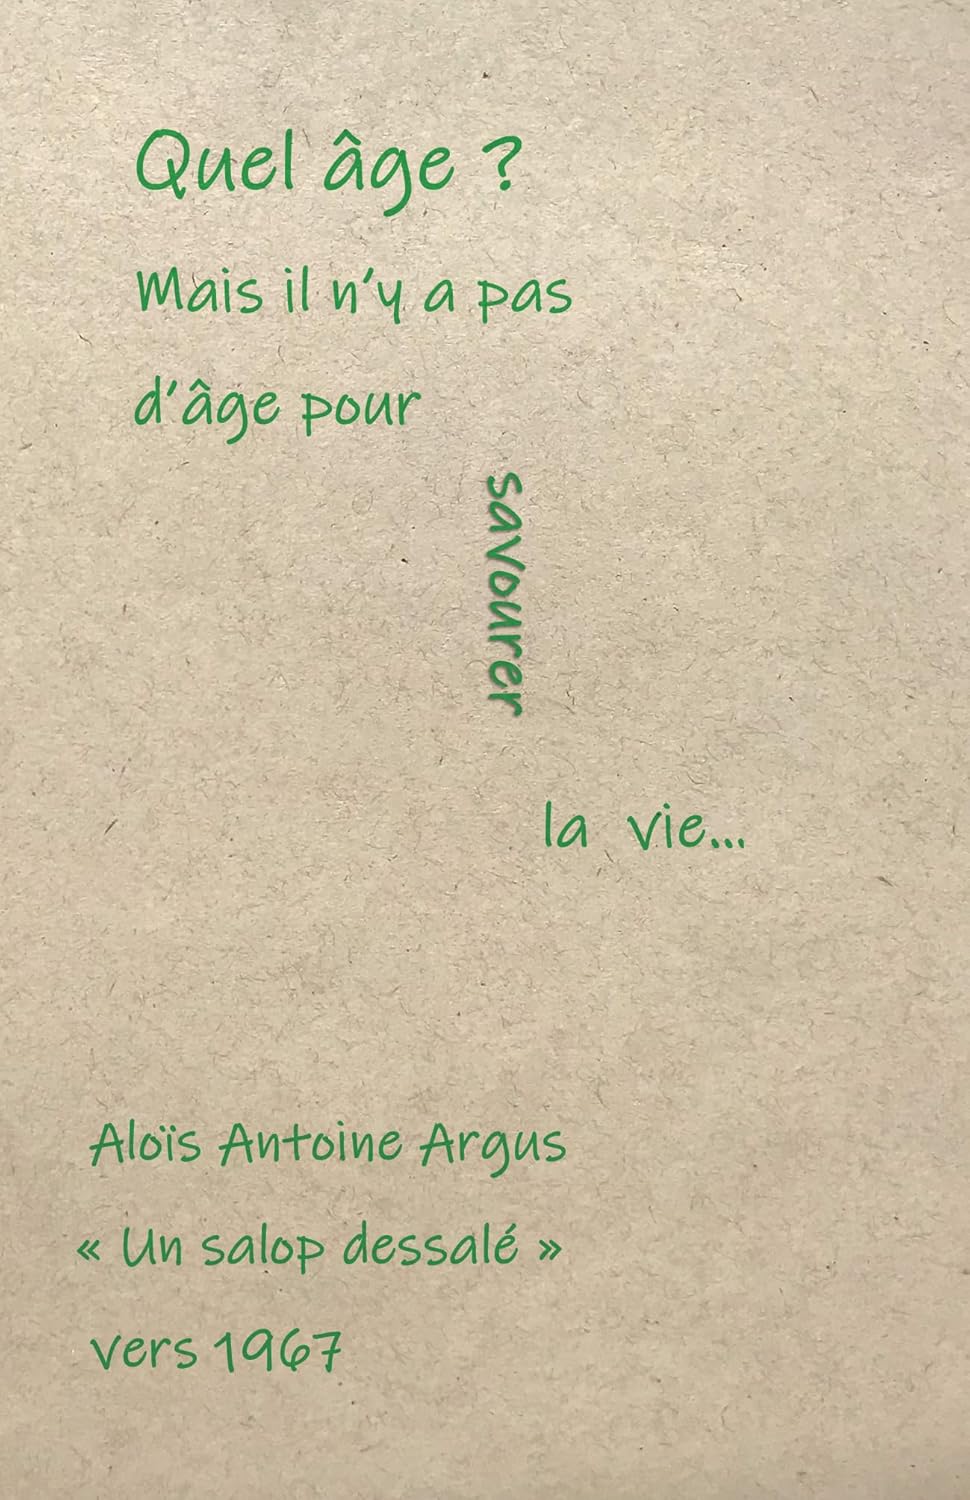 Quel âge ?
Mais il n'y a pas
d'âge pour
savourer
la vie...
Aloïs Antoine Argus
« Un salop dessalé »
vers 1967